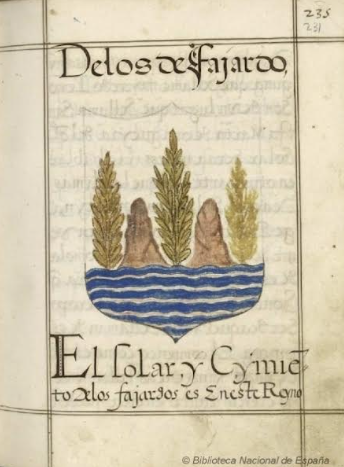 235
231
Delos de Fajardo,
El solar y Cymiē
to Delos fajardos es Eneste Reyno
© Biblioteca Nacional de España